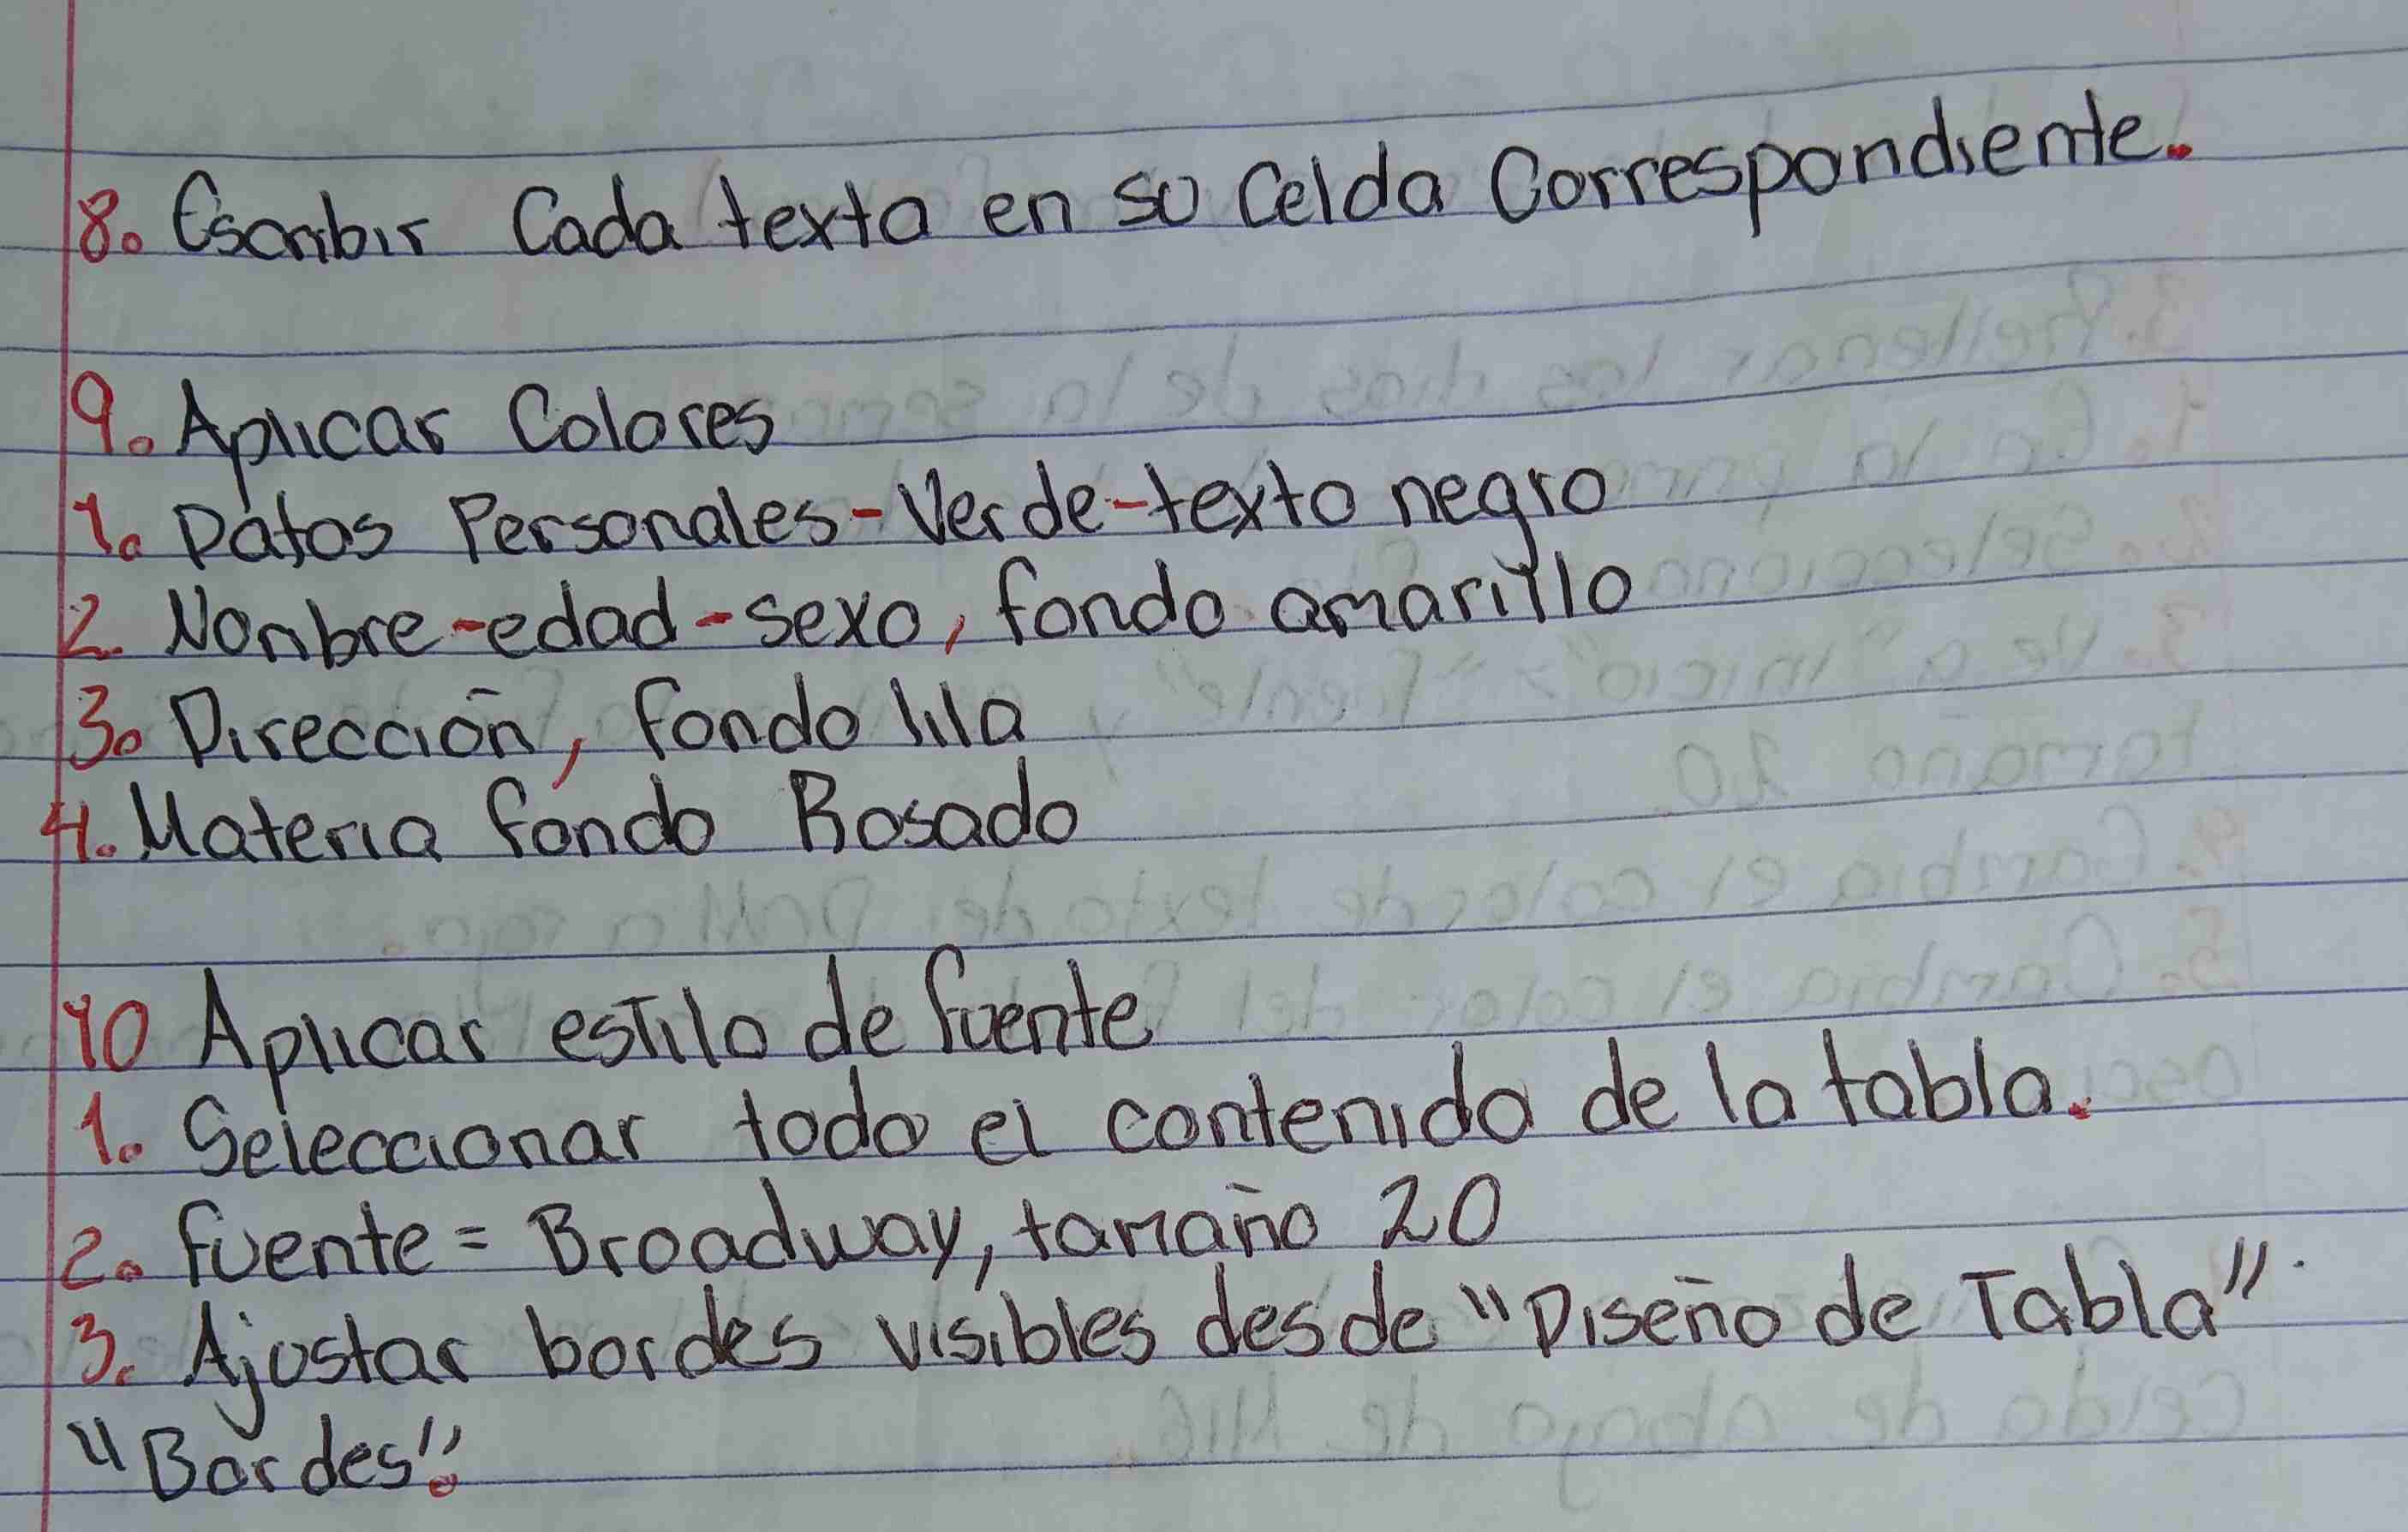 8. Escribir Cada texto en su Celda Correspondiente.
9. Aplicar Colores
1. Datos Personales-Verde-texto negro
2. Nonbre-edad-sexo, fondo amarillo
3. Dirección, fondo lila
4. Materia fondo Rosado
10 Aplicar estilo de fuente
1. Seleccionar todo el contenido de la tabla.
2. fuente = Broadway, tamaño 20
3. Ajustar bordes visibles desde "Diseño de Tabla"
"Bordes".